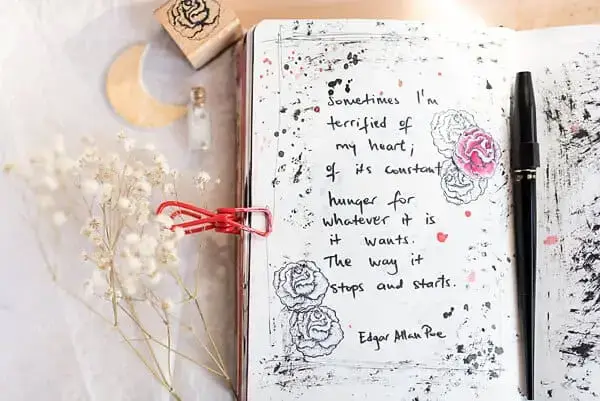 Sometimes I'm
terrified of
my heart;
of its constant
hunger for
whatever it is
it wants.
The way it
stops and starts.
Edgar Allan Poe